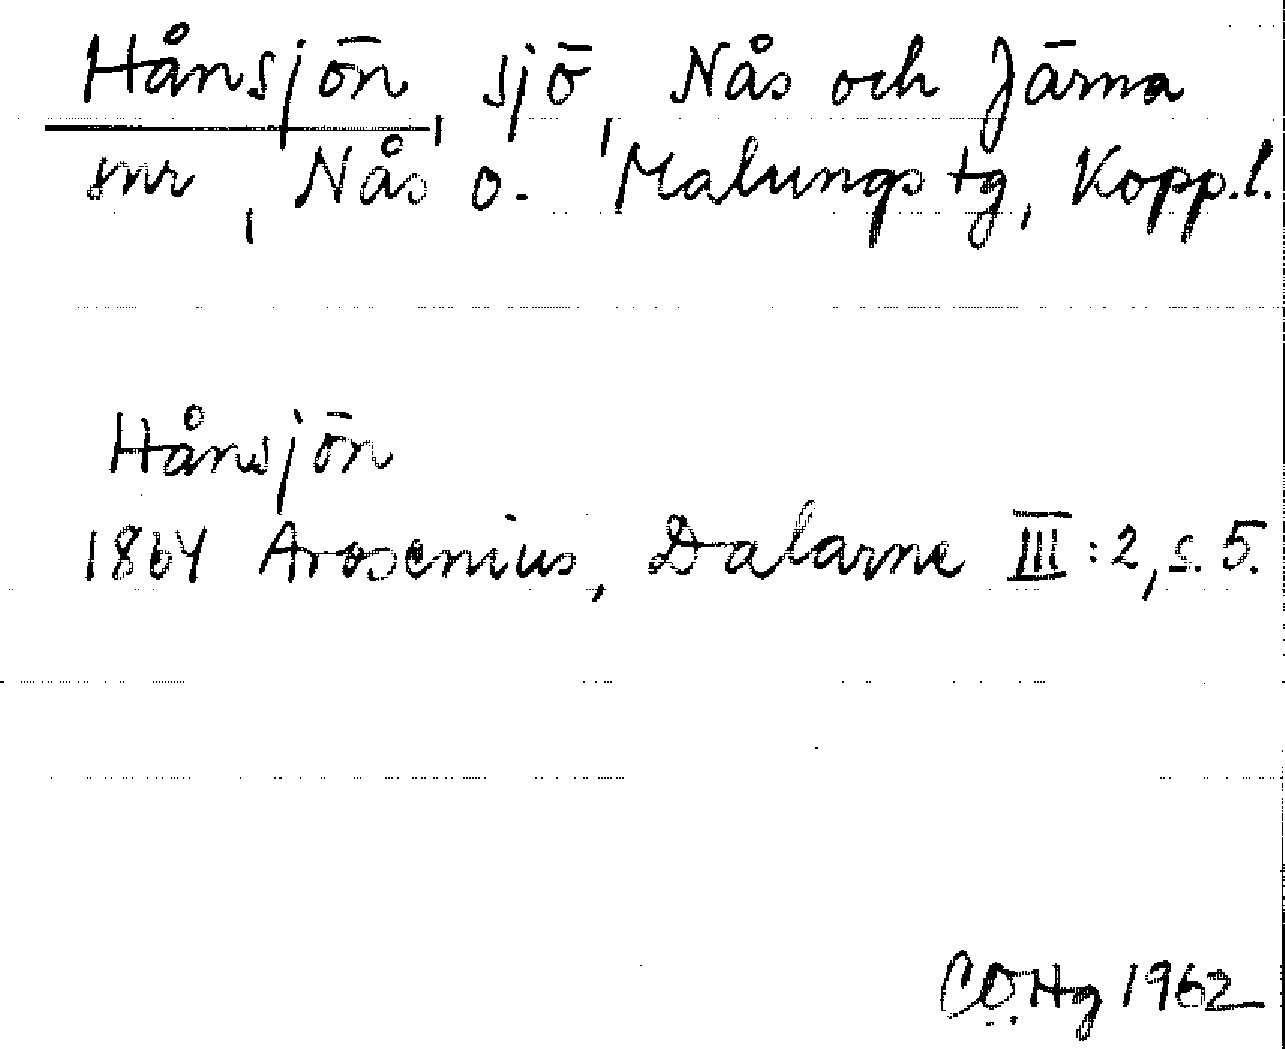 Hånsjön, sjö, Nås och Järna
snr, Nås o. Malungs tg, Kopp.l.
Hånsjön
1864 Arosenius, Dalarne III:2, s. 5.
CO.Hg 1962